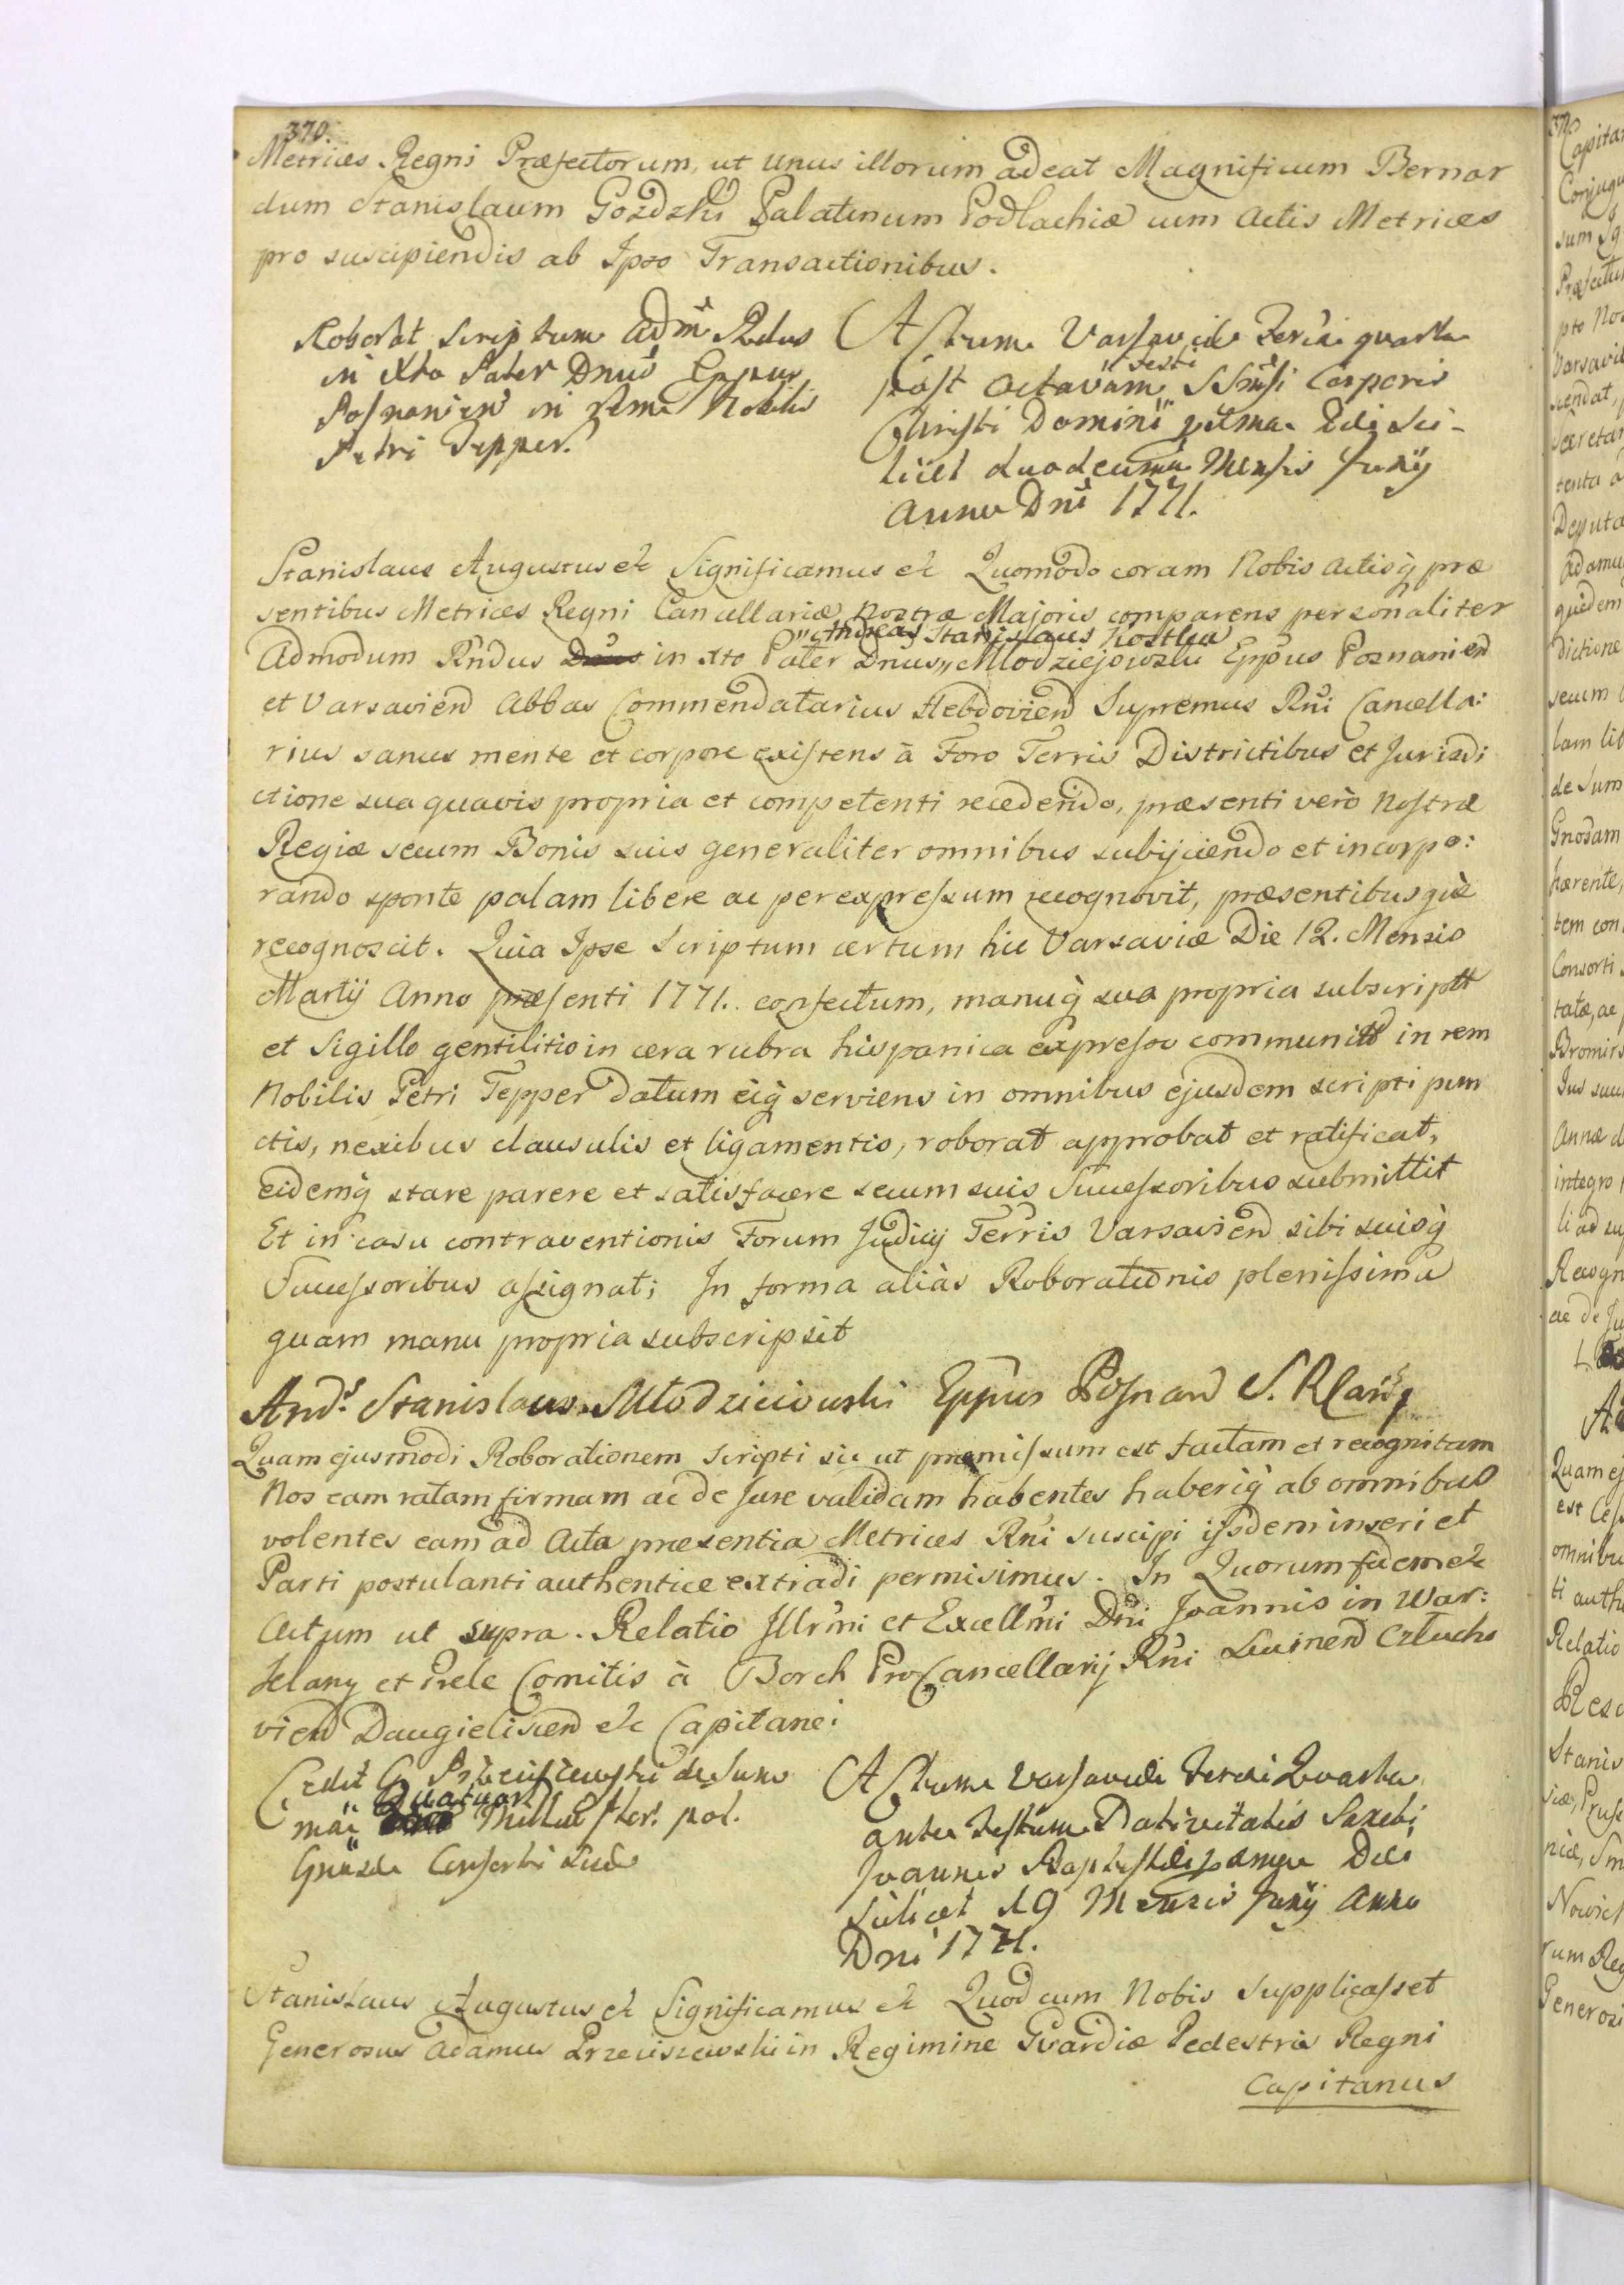 370.
Metrices Regni Præfectorum, ut unus illorum adeat Magnificum Bernar
dum Stanislaum Gozdzki Palatinum Podlachiæ cum Actis Metrices
pro suscipiendis ab Ipso Transactionibus.
Roborat Scriptum Adm Rndus
in Xto Pater Dnus Eppus
Posnanien in rem Nobilis
Petri Tepper.
Actum Varsaviæ Feria quarta
post Octavam festi SSmi Corporis
Christi Domini Die Sci-
licet duodecima Mensis Junij
Anno Dni 1771.
Stanislaus Augustus etc Significamus etc Quomodo coram Nobis Actisq præ
sentibus Metrices Regni Cancellariæ Nostræ Majoris comparens personaliter
Admodum Rndus in Xto Pater Dnus Andreas Stanislaus Kostka Mlodziejowski Eppus Poznanien
et Varsavien Abbas Commendatarius Hebdovien Supremus Rni Cancella:
rius sanus mente et corpore existens à Foro Terris Districtibus et Jurisdi
ctione sua quavis propria et competenti recedendo, præsenti verò Nostræ
Regiæ secum Bonis suis generaliter omnibus subijciendo et incorpo:
rando sponte palam libere ac per expressum recognovit, præsentibusquè
recognoscit. Quia Ipse Scriptum certum hic Varsaviæ Die 12. Mensis
Martij Anno præsenti 1771. confectum, manuq sua propria subscriptt
et Sigillo gentilitio in cera rubra hispanica expresso communitt in rem
Nobilis Petri Tepper datum eiq serviens in omnibus ejusdem scripti pun
ctis, nexibus clausulis et ligamentis, roborat approbat et ratificat,
eidemq stare parere et satisfacere secum suis Successoribus submittit
Et in casu contraventionis Forum Judicij Terris Varsavien sibi suisq
Successoribus assignat; In forma aliàs Roborationis plenissima
quam manu propria subscripsit
And: Stanislaus Młodzieiowski Eppus Posnan S. R Canc
Quam ejusmodi Roborationem scripti sic ut præmissum est factam et recognitam
Nos eam ratam firmam ac de Jure validam habentes haberiq ab omnibus
volentes eam ad Acta præsentia Metrices Rni suscipi ijsdem inseri et
Parti postulanti authentice extradi permisimus. In Quorum fidem etc
Actum ut supra. Relatio Illrmi et Excellmi Dni Joannis in War:
klany et Prele Comitis à Borch ProCancellarij Rni Lucinen Czlucho
vien Daugielisen etc Capitanei
Cedit G Przeciszewski de Sum
mæ Quatuor Mille flor: pol.
Gnosæ Consorti suæ
Actum Varsaviæ Feria Quarta
ante Festum Nativitatis Sancti
Joannis Baptistæ Die
Scilicet 19 Mensis Junij Anno
Dni 1771.
Stanislaus Augustus etc Significamus etc Quod cum Nobis Supplicasset
Generosus Adamus Przeciszewski in Regimine Gvardiæ Pedestris Regni
Capitanus